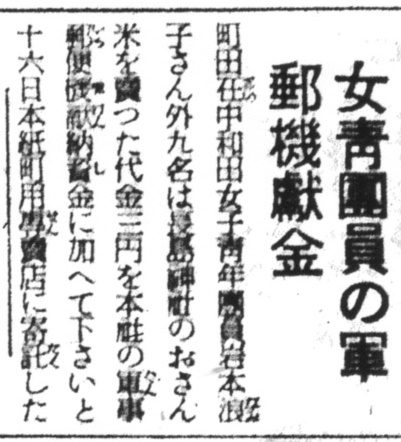 女靑團員の軍
郵機獻金
町田在中和田女子靑年團員岩本浪
子さん外九名は長島神社のおさん
米を賣つた代金三円を本社の軍事
郵便機獻納資金に加へて下さいと
十六日本紙町田專賣店に寄託した